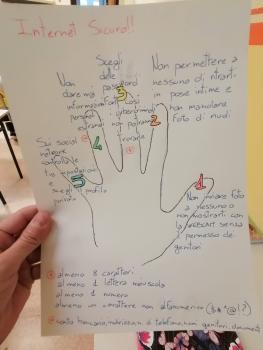 Internet Sicuro!!
Scegli
delle
password
forti così i
cybercriminali
non potranno
trovarle
3
Non
dare mai
informazioni
personali
estranei
4
Non permettere a
nessuno di ritrarti
in pose intime e
non mandare
foto di nudi
2
Sui social
network
controlla le
tue impostazioni
e scegli il profilo
privato
5
1
Non inviare foto
a nessuno o
non mostrarti con
la WEBCAM senza
permesso dei
genitori
almeno 8 caratteri
almeno 1 lettera maiuscola
almeno 1 numero
almeno un carattere non alfanumerico ($*^@!?)
conto bancario, indirizzo, n. di telefono, nomi genitori, documenti